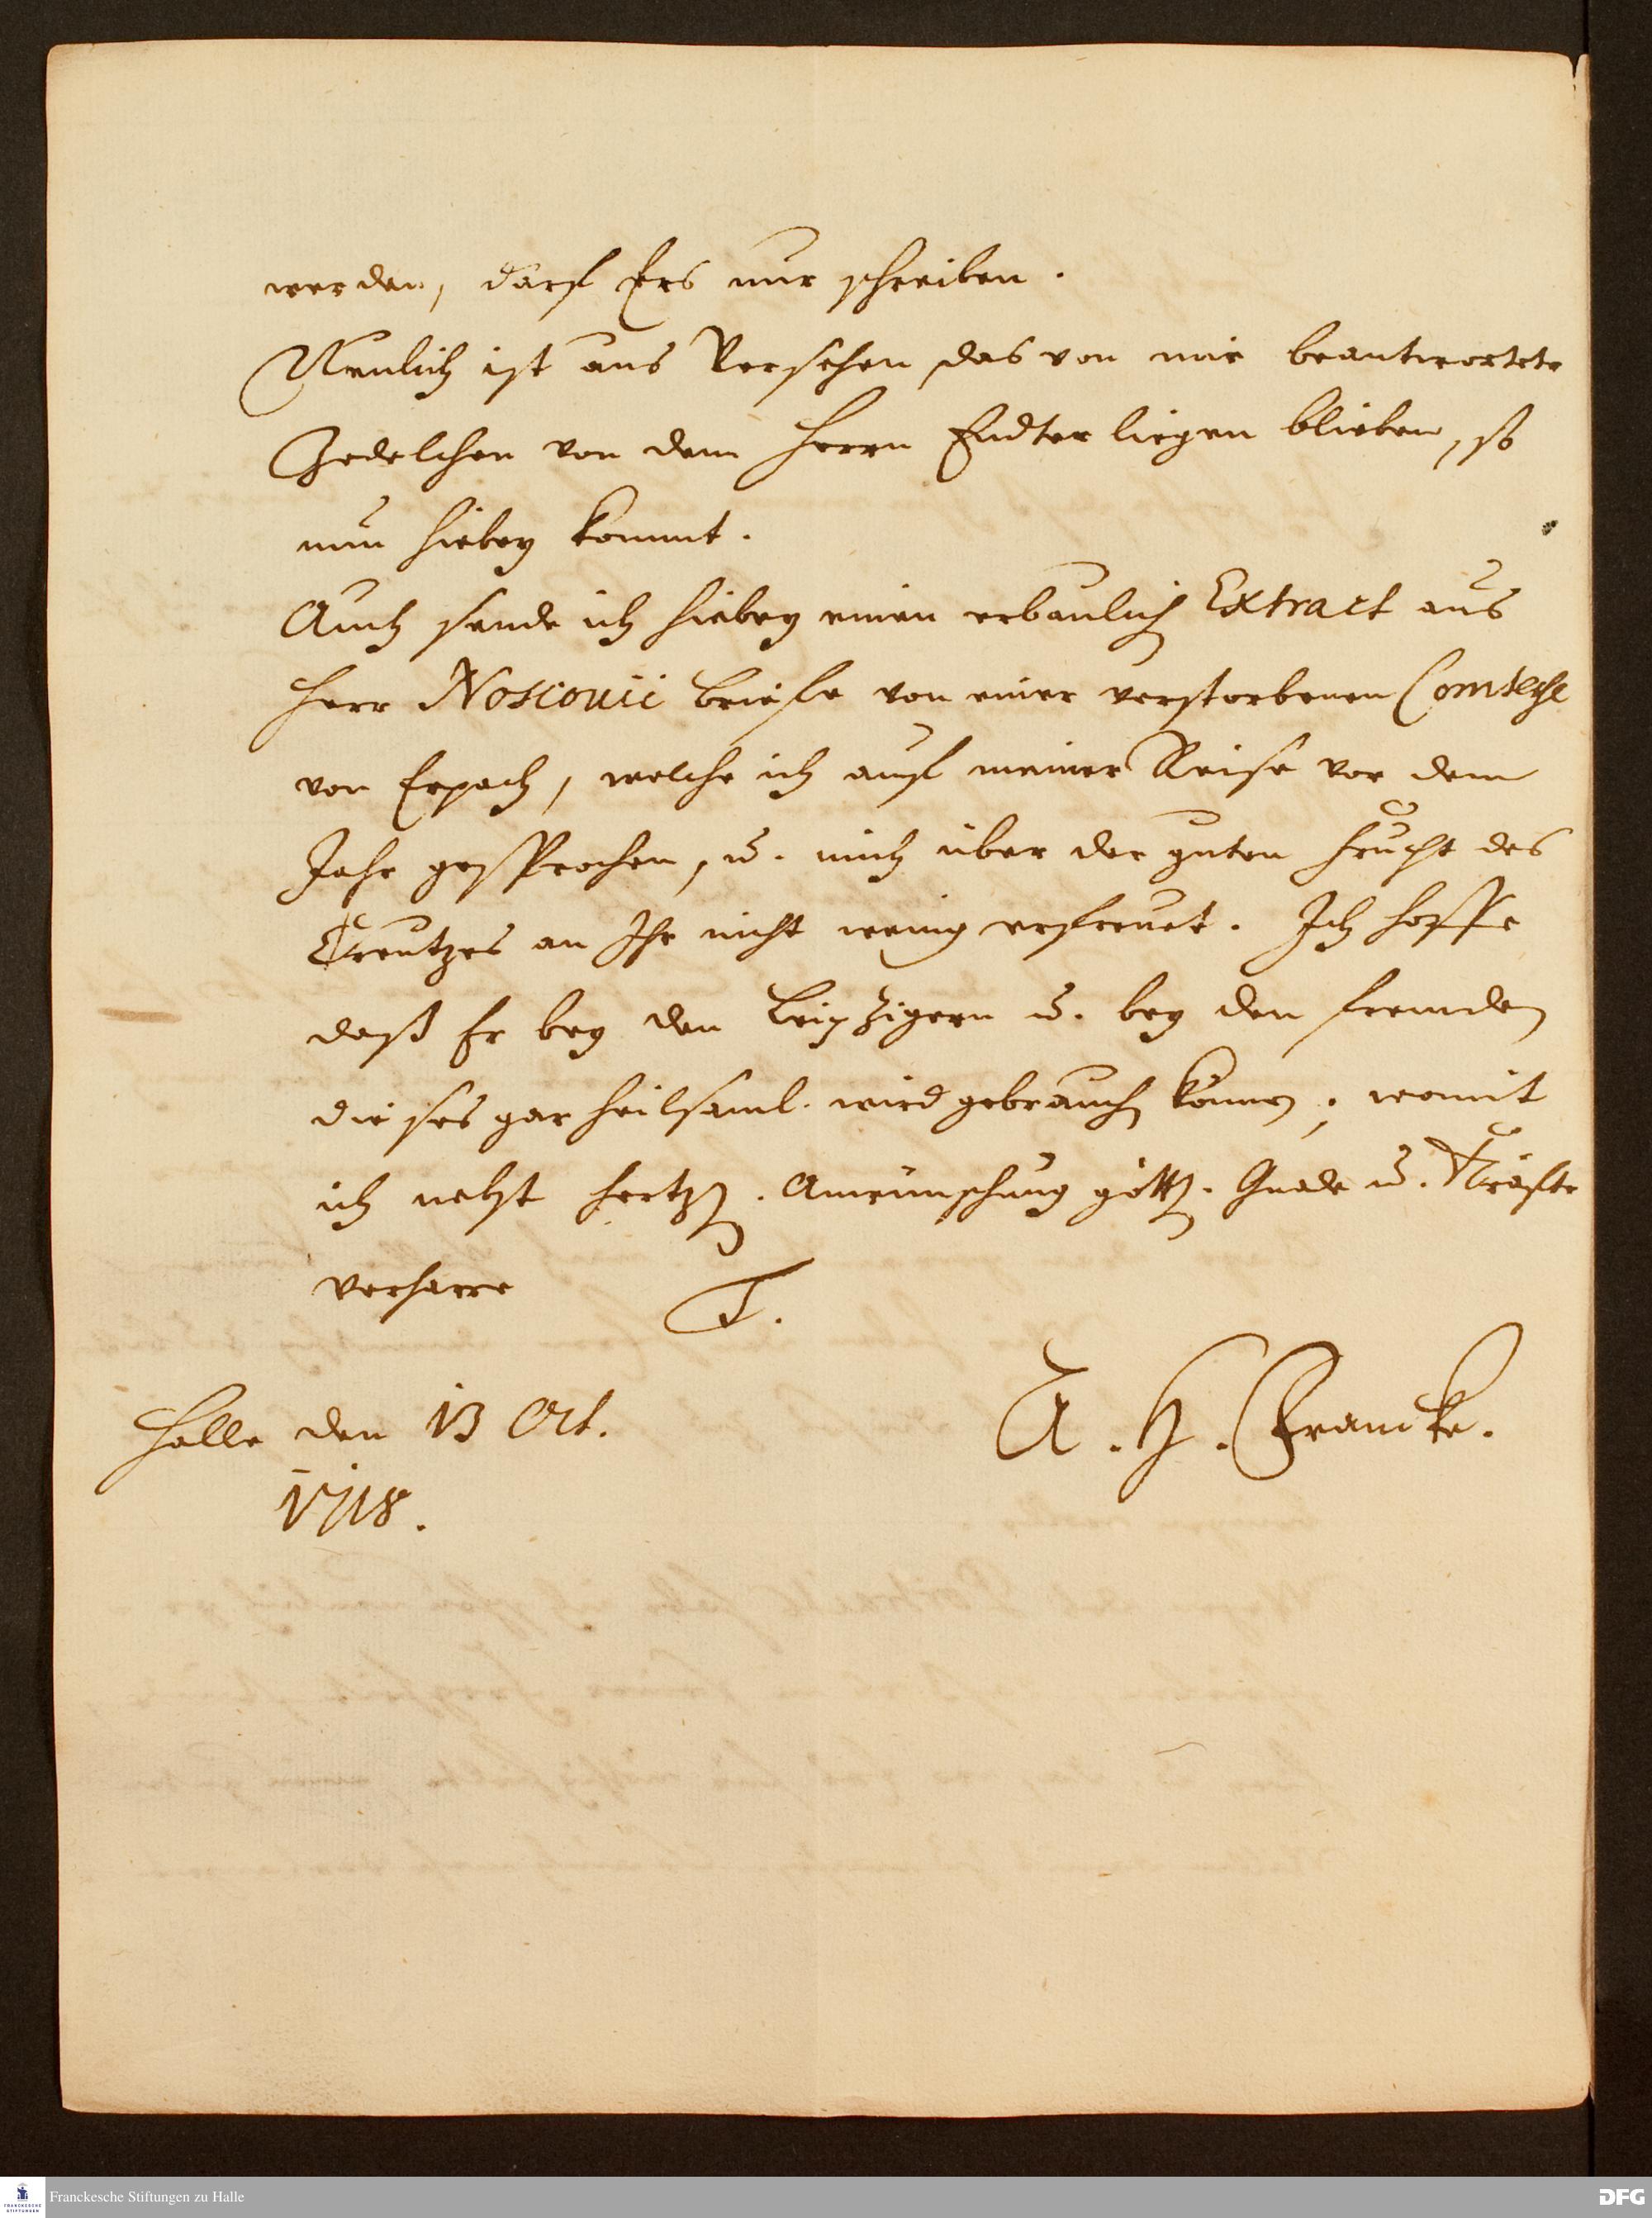 werden, darf Ers nur schreiben.
Neulich ist aus Versehen das von mir beantwortete
Zedelchen von dem Herrn Endter liegen blieben, so
nun hiebey kommt.
Auch sende ich hiebey einen erbaulich Extract aus
Herr Noscovii Briefe von einer verstorbenen Comtesse
von Erpach, welche ich auf meiner Reise vor dem
Jahr gesprochen, u. mich über der guten Frucht des
Creutzes an Ihr nicht wenig erfreuet. Ich hoffe
daß Er bey den Leipzigern u. bey den fremden
dieses gar heilsaml. wird gebrauch können; womit
ich nebst hertzl. Anwünschung göttl. Gnade u. Kräfte
verharre
T.
A. H. Francke.
Halle den 13 Oct.
1718.
Franckesche Stiftungen zu Halle
DFG